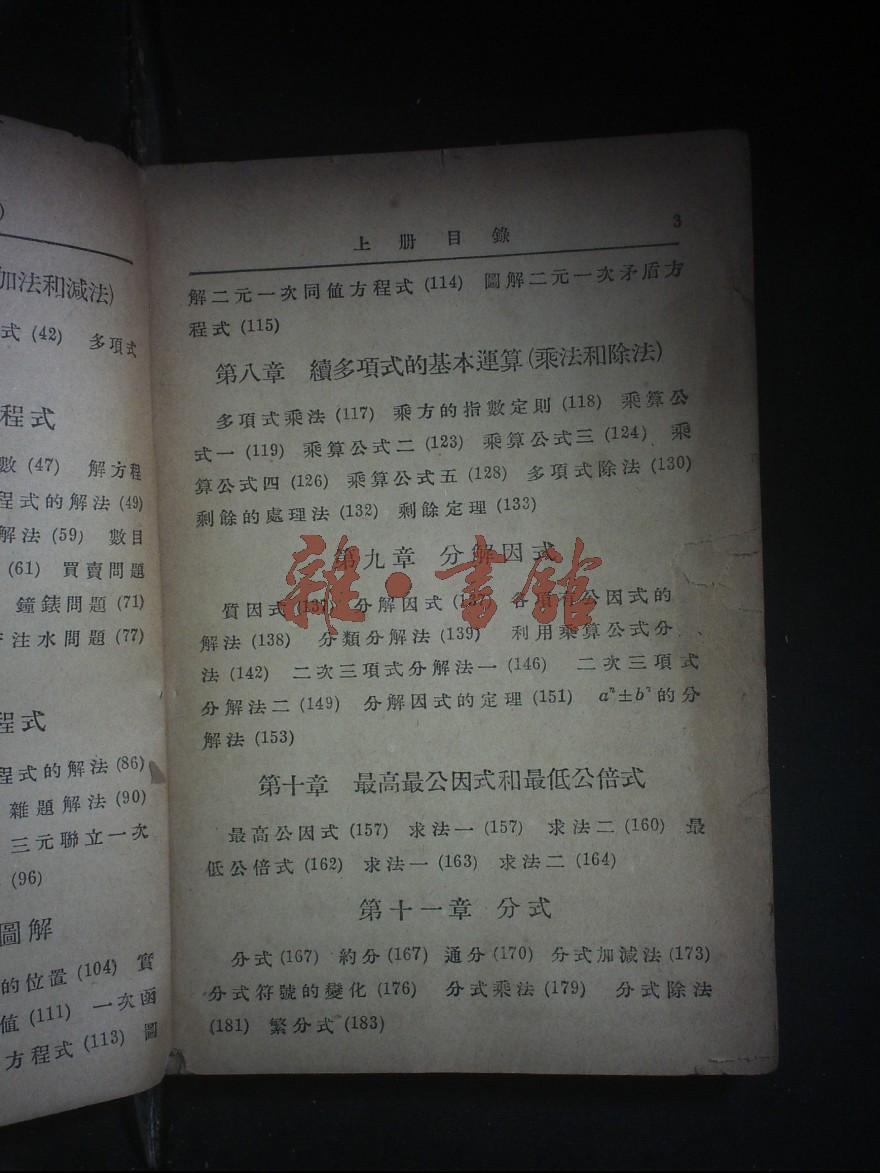 加法和減法)
式 (42) 多項式
程式
數 (47) 解方程
程式的解法 (49)
解法 (59) 數目
(61) 買賣問題
鐘錶問題 (71)
注水問題 (77)
程式
程式的解法 (86)
雜題解法 (90)
三元聯立一次
(96)
圖解
的位置 (104) 實
值 (111) 一次函
方程式 (113) 圖
上册目錄 3
解二元一次同值方程式 (114) 圖解二元一次矛盾方
程式 (115)
第八章 續多項式的基本運算(乘法和除法)
多項式乘法 (117) 乘方的指數定則 (118) 乘算公
式一 (119) 乘算公式二 (123) 乘算公式三 (124) 乘
算公式四 (126) 乘算公式五 (128) 多項式除法 (130)
剩餘的處理法 (132) 剩餘定理 (133)
第九章 分解因式
雜·書館
質因式 (137) 分解因式 (137) 各項有公因式的
解法 (138) 分類分解法 (139) 利用乘算公式分
法 (142) 二次三項式分解法一 (146) 二次三項式
分解法二 (149) 分解因式的定理 (151) aⁿ±bⁿ的分
解法 (153)
第十章 最高最公因式和最低公倍式
最高公因式 (157) 求法一 (157) 求法二 (160) 最
低公倍式 (162) 求法一 (163) 求法二 (164)
第十一章 分式
分式 (167) 約分 (167) 通分 (170) 分式加減法 (173)
分式符號的變化 (176) 分式乘法 (179) 分式除法
(181) 繁分式 (183)